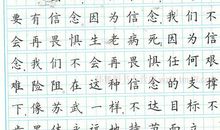 要有信念因为信念,我们不
会再畏惧生老病死,因为信
念,我们不会再畏惧任何艰
难险阻在这种信念的支撑
下,像苏武一样,不达目标不